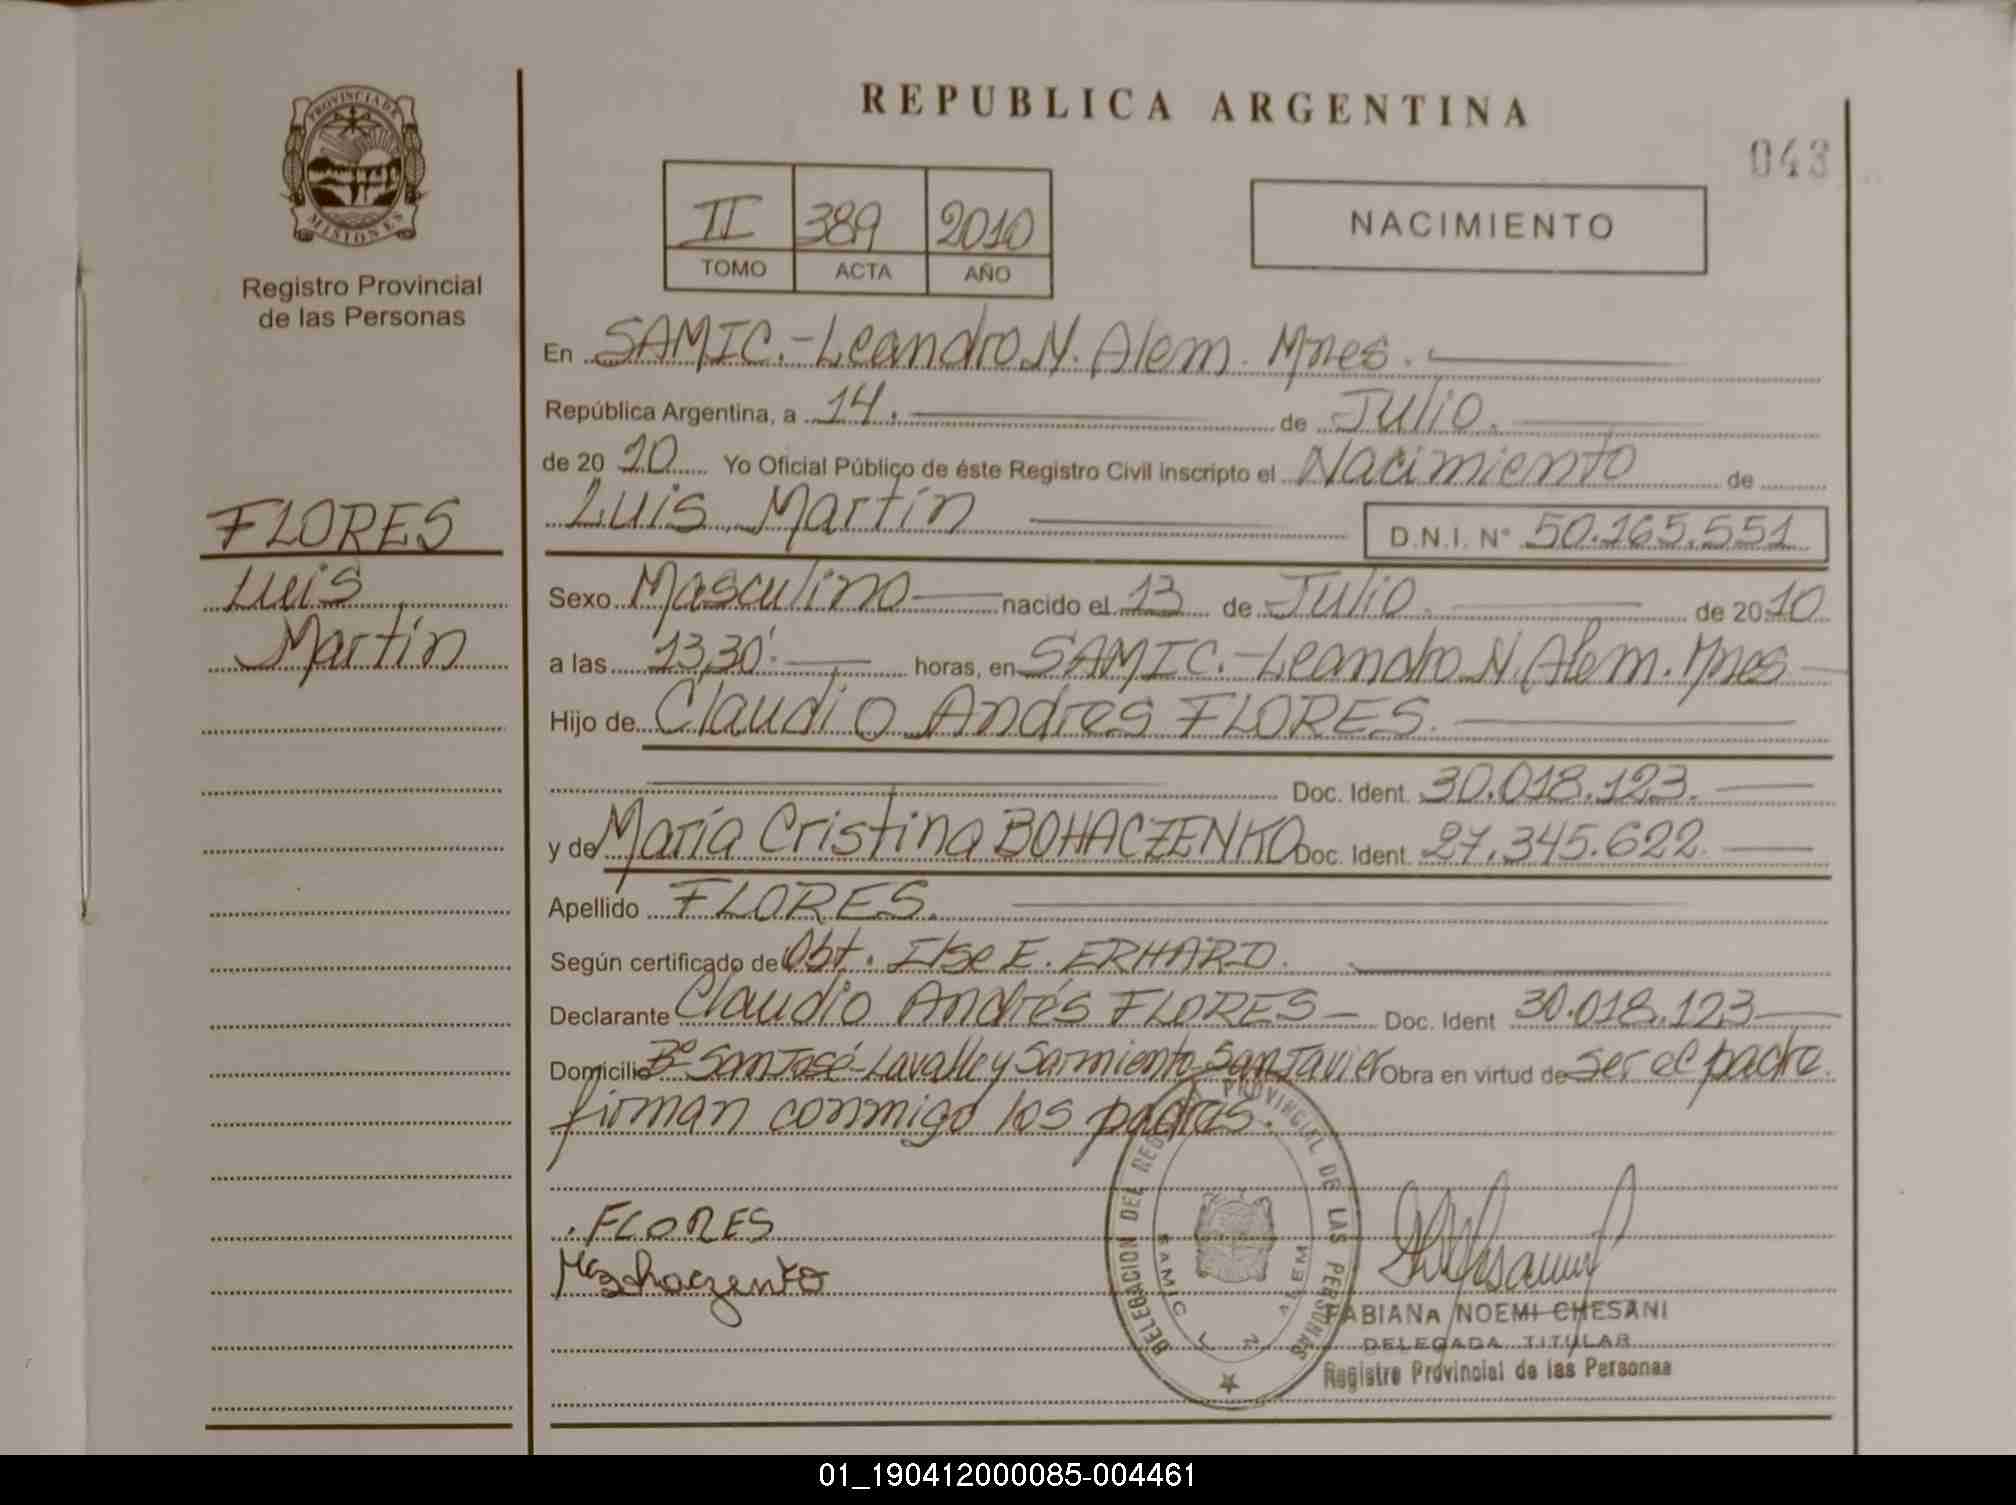 PROVINCIA DE
MISIONES
Registro Provincial
de las Personas
FLORES
Luis
Martín
REPUBLICA ARGENTINA
043
II 389 2010
TOMO ACTA AÑO
NACIMIENTO
En SAMIC.-Leandro N. Alem. Mnes.
República Argentina, a 14. de Julio.
de 20 10 Yo Oficial Público de éste Registro Civil inscripto el Nacimiento de
Luis Martín D.N.I. N° 50.165.551
Sexo Masculino nacido el 13 de Julio. de 20 10
a las 13,30' horas, en SAMIC.-Leandro N. Alem. Mnes
Hijo de Claudio Andres FLORES.
Doc. Ident. 30.018.123.
y de María Cristina BOHACZENKO Doc. Ident. 27.345.622
Apellido FLORES.
Según certificado de Obt. Ilse E. ERHARD.
Declarante Claudio Andrés FLORES - Doc. Ident 30.018.123
Domicilio B° San José-Lavalle y Sarmiento San Javier Obra en virtud de ser el padre.
firman conmigo los padres.
FLORES
DELEGACION DEL REG PROVINCIAL DE LAS PERSONAS
SAMIC L N ALEM
FABIANA NOEMI CHESANI
DELEGADA TITULAR
Registro Provincial de las Personas
01_190412000085-004461